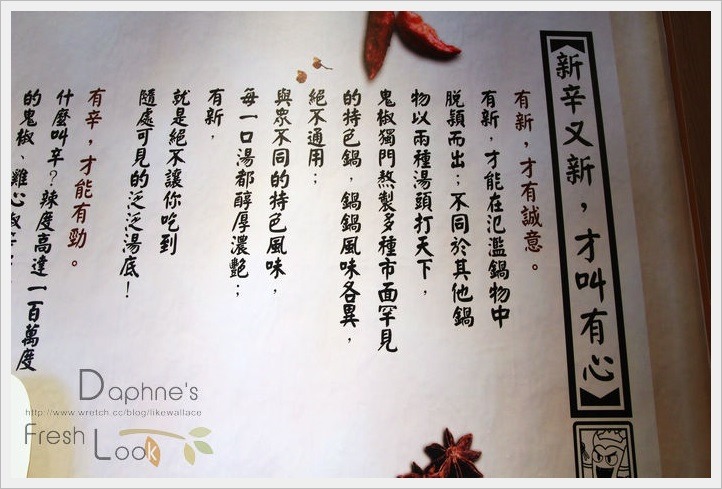 新辛又新，才叫有心
有新，才有誠意。
有新，才能在氾濫鍋物中
脫穎而出；不同於其他鍋
物以兩種湯頭打天下，
鬼椒獨門熬製多種市面罕見
的特色鍋，鍋鍋風味各異，
絕不通用；
與眾不同的特色風味，
每一口湯都醇厚濃艷；
有新，
就是絕不讓你吃到
隨處可見的泛泛湯底！
有辛，才能有勁。
什麼叫辛？辣度高達一百萬度
的鬼椒、雞心椒
Daphne's
http://www.wretch.cc/blog/likewallace
Fresh Look